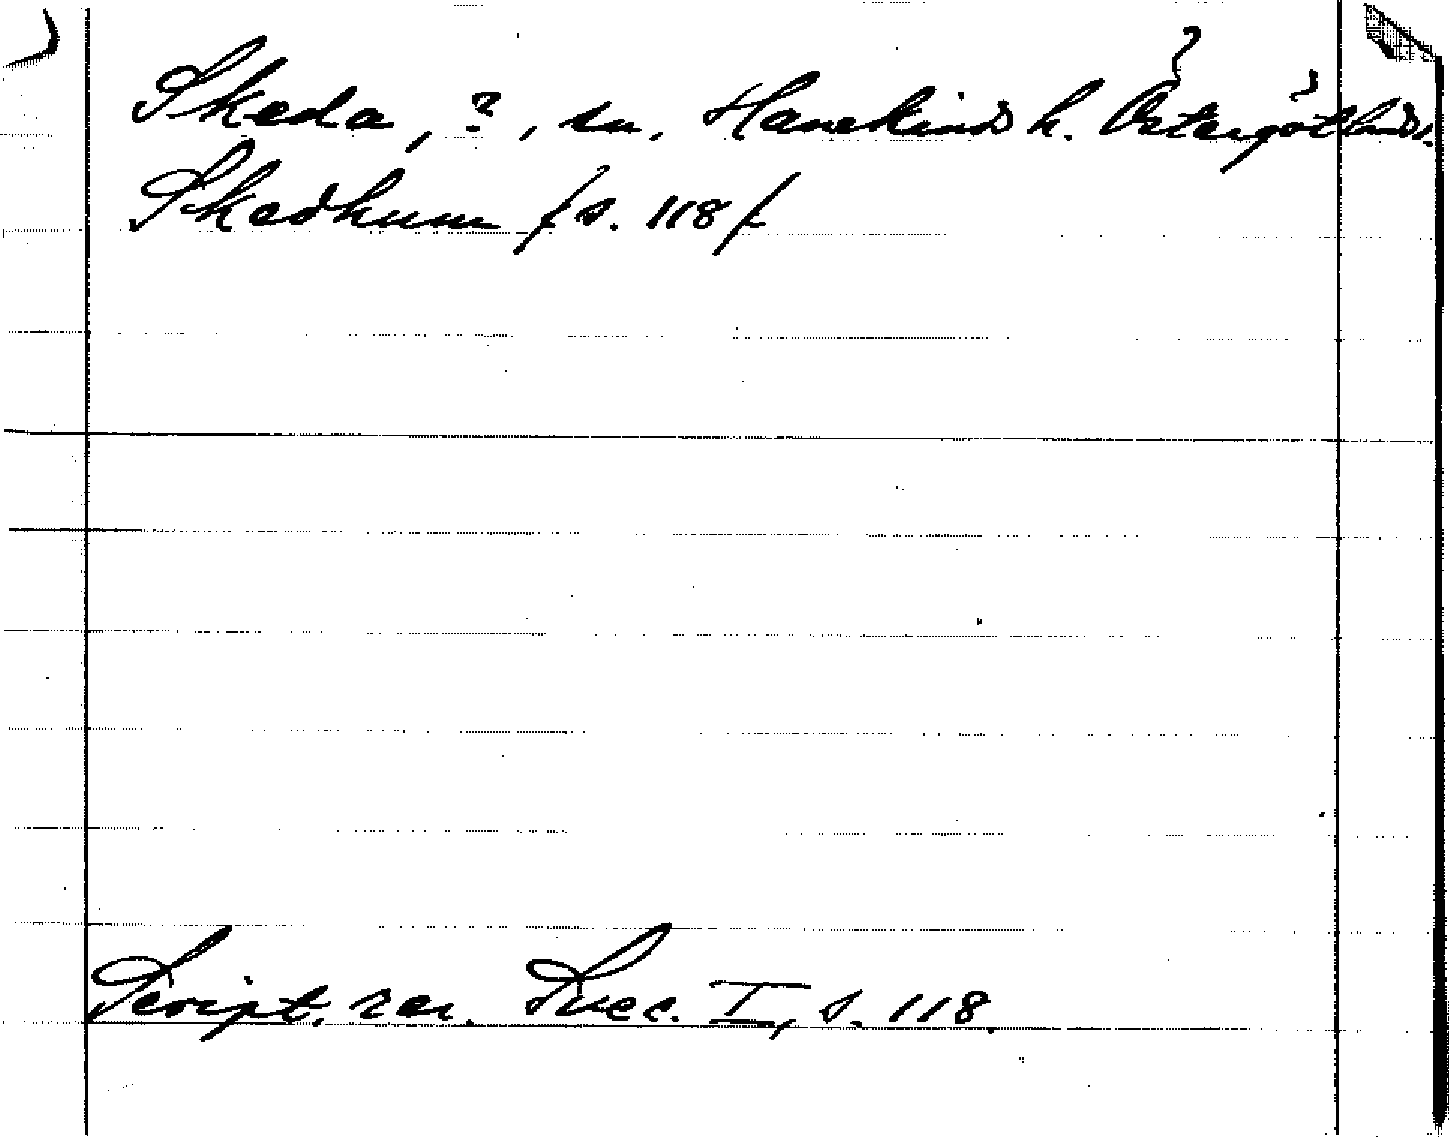 Skeda, ?, sn, Hanekinds h. Östergötlands l.
Skedhum /s. 118/
Script. rer. Svec. I, s. 118.